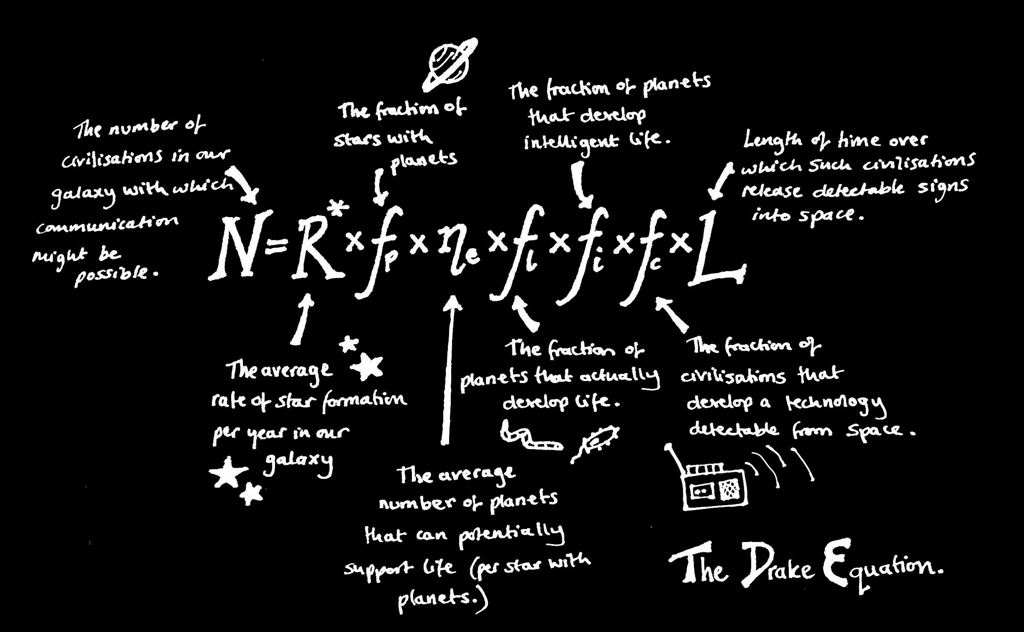 The number of
civilisations in our
galaxy with which
communication
might be
possible.
The fraction of
stars with
planets
The fraction of planets
that develop
intelligent life.
Length of time over
which such civilisations
release detectable signs
into space.
N = R* × fp × ηe × fl × fi × fc × L
The average
rate of star formation
per year in our
galaxy
The average
number of planets
that can potentially
support life (per star with
planets.)
The fraction of
planets that actually
develop life.
The fraction of
civilisations that
develop a technology
detectable from space.
The Drake Equation.